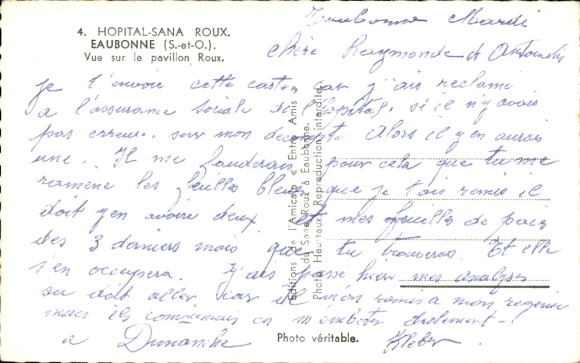 4. HOPITAL-SANA ROUX.
EAUBONNE (S.-et-O.).
Vue sur le pavillon Roux.
Eaubonne Mardi
chère Raymonde et Antoinette
je t'envoie cette carte car j'ais reclamé
a l'assurance sociale de l'hopital, si il n'y avais
pas erreur sur mon décompte. Alors il y en aurais
une. Il me faudrais pour cela que tu me
ramène les feuilles bleus que je t'ais remis il
doit y en avoire deux et mes feuilles de paies
des 3 derniers mois que tu trouveras. Et elle
s'en occupera. J'ais passé hier mes analyses
sa doit aller car il m'on remis a mon regime
mais ils commencais as m'embeter drolement
a Dimanche
Kleber
Editions de l'Amicale « Entre Amis »
du Sana Roux à Eaubonne.
Photo Heurtaux Reproduction interdite
Photo véritable.